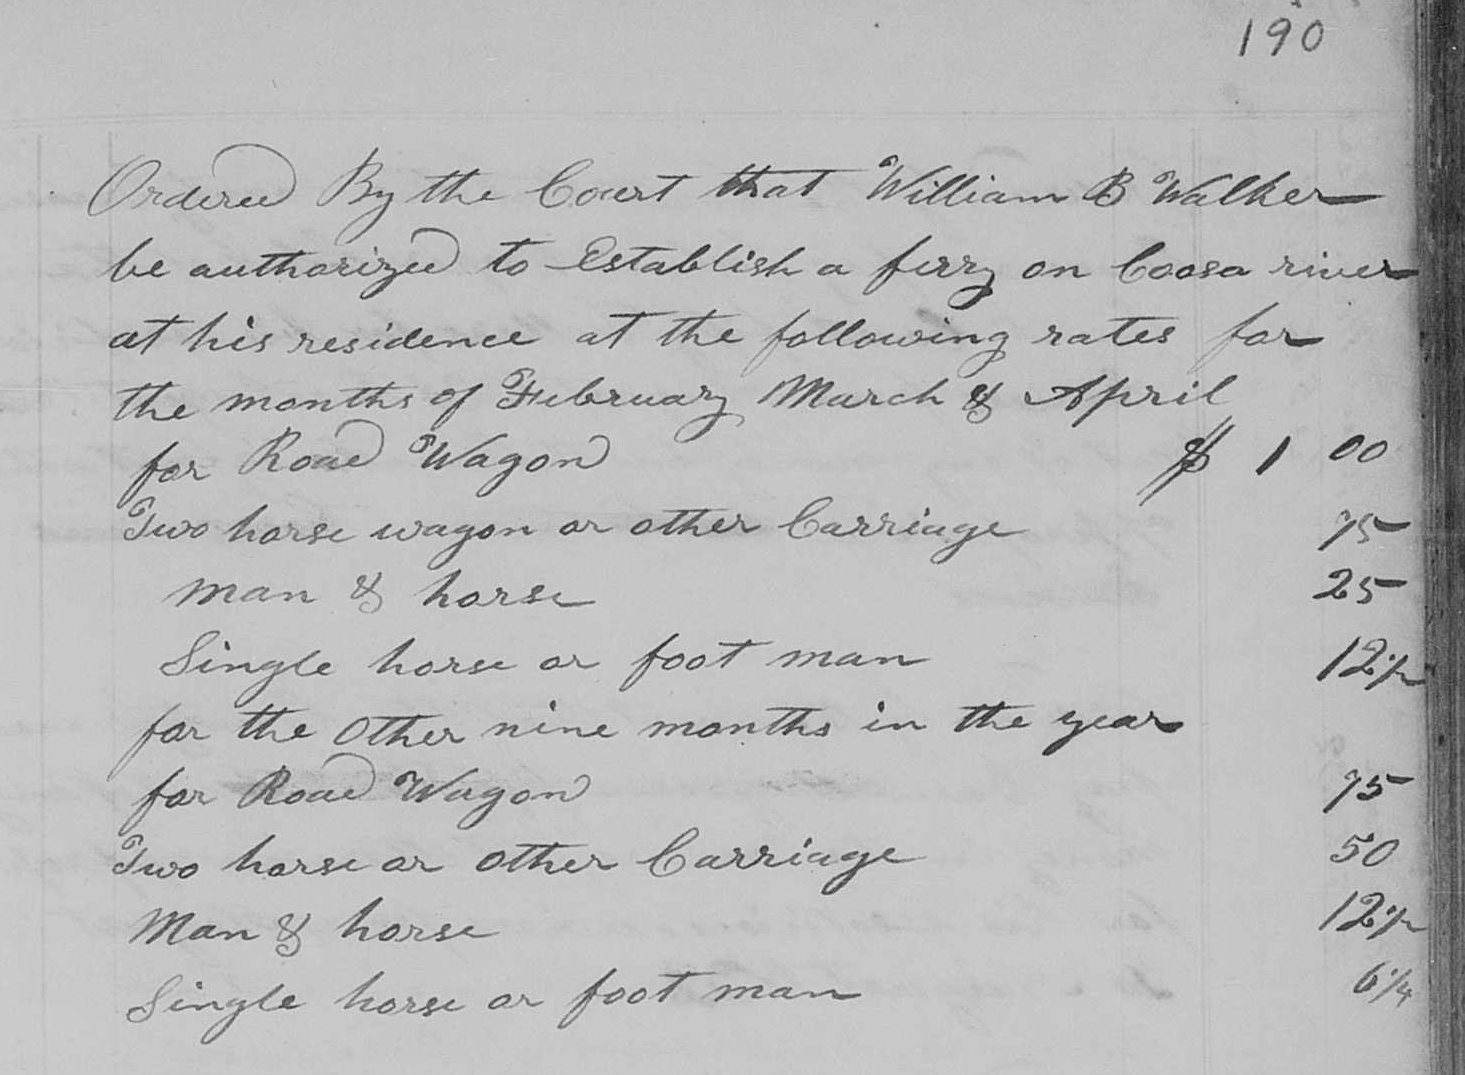 190
Ordered By the Court that William B Walker
be authorized to Establish a ferry on Coosa river
at his residence at the following rates for
the months of February March & April
for Road Wagon $ 1 00
Two horse wagon or other Carriage 75
man & horse 25
Single horse or foot man 12½
for the other nine months in the year
for Road Wagon 75
Two horse or other Carriage 50
Man & horse 12½
Single horse or foot man 6¼